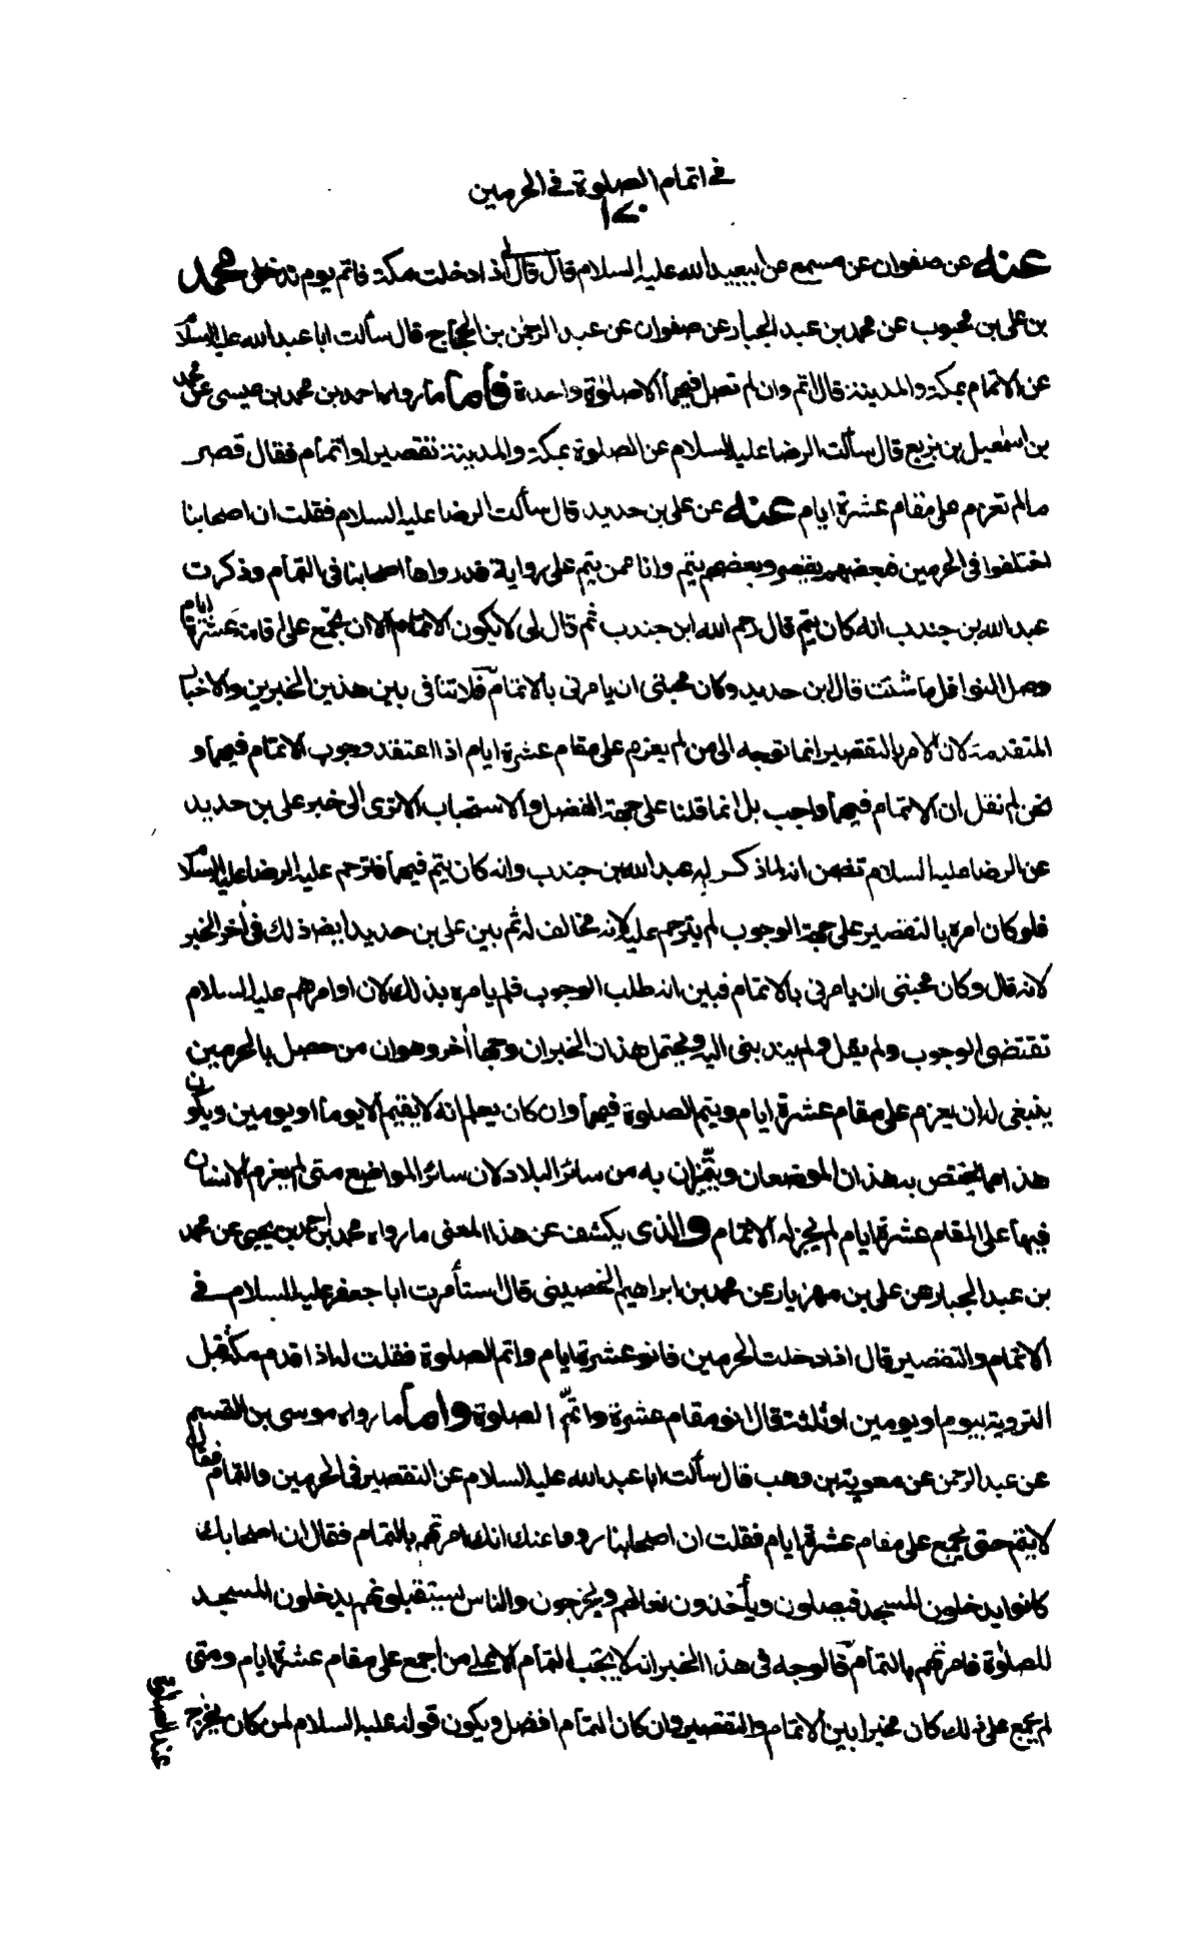 في اتمام الصلوة في الحرمين
١٧٠
عنه عن صفوان عن مسمع عن ابيعبدالله عليه السلام قال قال لي اذا دخلت مكة فاتم يوم تدخل محمد
بن على بن محبوب عن محمد بن عبد الجبار عن صفوان عن عبد الرحمن بن الحجاج قال سألت ابا عبد الله عليه السلام
عن الاتمام بمكة والمدينة قال اتم وان لم تصل فيهما الا صلوة واحدة فأما ما رواه احمد بن محمد بن عيسى عن محمد
بن اسمعيل بن بزيع قال سألت الرضا عليه السلام عن الصلوة بمكة والمدينة تقصير او اتمام فقال قصر
ما لم تعزم على مقام عشرة ايام عنه عن على بن حديد قال سألت الرضا عليه السلام فقلت ان اصحابنا
اختلفوا في الحرمين فبعضهم يقصر وبعضهم يتم وانا ممن يتم على رواية قد رواها اصحابنا في التمام وذكرت
عبد الله بن جندب انه كان يتم قال رحم الله ابن جندب ثم قال لى لا يكون الاتمام الا ان تجمع على اقامة عشرة ايام
وصل النوافل ما شئت قال ابن حديد وكان محبتى ان يامرنى بالاتمام فلا تنافى بين هذين الخبرين والاخبار
المتقدمة لان الامر بالتقصير انما توجه الى من لم يعزم على مقام عشرة ايام اذا اعتقد وجوب الاتمام فيهما و
نحن لم نقل ان الاتمام فيهما واجب بل انما قلنا على جهة الفضل والاستحباب الا ترى الى خبر على بن حديد
عن الرضا عليه السلام تضمن انه لما ذكر له عبد الله بن جندب وانه كان يتم فيهما فترحم عليه الرضا عليه السلام
فلو كان امره بالتقصير على جهة الوجوب لم يترحم عليه لانه مخالف له ثم بين على بن حديد ايضا ذلك في أخر الخبر
لانه قال وكان محبتى ان يامرنى بالاتمام فبين انه طلب الوجوب فلم يامره بذلك لان اوامرهم عليه السلام
تقتضى الوجوب ولم يقل ولم يندبنى اليه ويحتمل هذان الخبران وجها أخر وهو ان من حصل بالحرمين
ينبغى له ان يعزم على مقام عشرة ايام ويتم الصلوة فيهما وان كان يعلم انه لا يقيم الا يوما او يومين ويكون
هذا مما يختص به هذان الموضعان ويتميزان به من سائر البلاد لان سائر المواضع متى لم يعزم الانسان
فيها على المقام عشرة ايام لم يجز له الاتمام والذى يكشف عن هذا المعنى ما رواه محمد بن احمد بن يحيى عن محمد
بن عبد الجبار عن على بن مهزيار عن محمد بن ابراهيم الحضينى قال استأمرت ابا جعفر عليه السلام في
الاتمام والتقصير قال اذا دخلت الحرمين فانو عشرة ايام واتم الصلوة فقلت له اذا قدم مكة قبل
التروية بيوم او يومين او ثلثة قال انو مقام عشرة واتمّ الصلوة واما ما رواه موسى بن القسم
عن عبد الرحمن عن معوية بن وهب قال سألت ابا عبد الله عليه السلام عن التقصير في الحرمين والتمام فقال
لا يتم حتى يجمع على مقام عشرة ايام فقلت ان اصحابنا رووا عنك انك امرتهم بالتمام فقال ان اصحابك
كانوا يدخلون المسجد فيصلون ويأخذون نعالهم ويخرجون والناس يستقبلونهم يدخلون المسجد
للصلوة فامرتهم بالتمام فالوجه في هذا الخبر انه لا يجب التمام الا على من اجمع على مقام عشرة ايام ومتى
لم يجمع على ذلك كان مخيرا بين الاتمام والتقصير وان كان التمام افضل ويكون قوله عليه السلام لمن كان يخرج
عند الصلوة